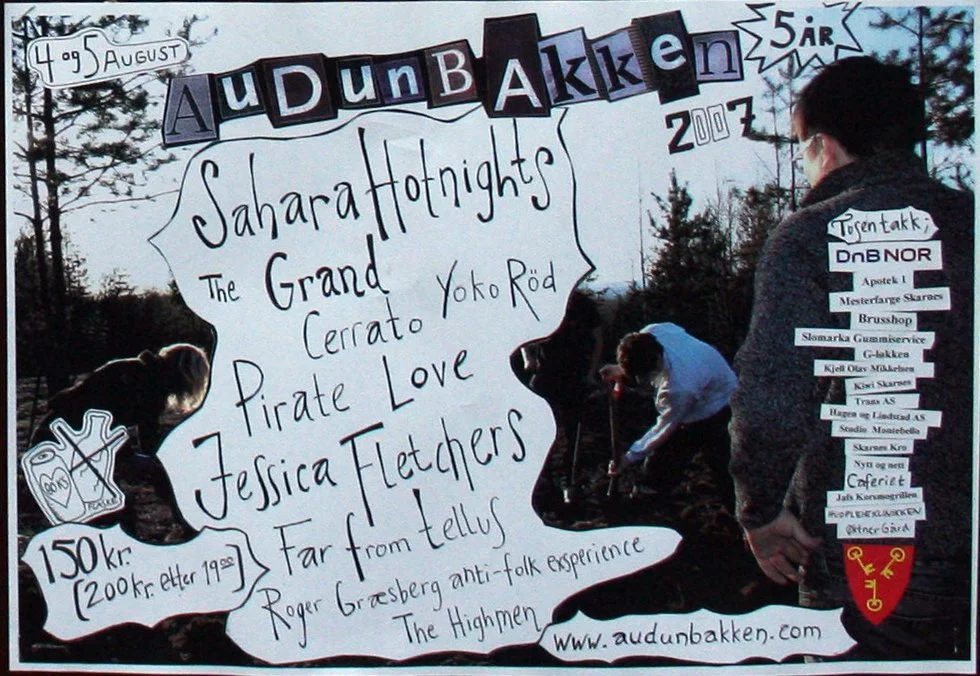 4 og 5 AUGUST
AuDunBAkken
5 ÅR
2007
Sahara Hotnights
The Grand
Cerrato Yoko Röd
Pirate Love
Jessica Fletchers
Far from tellus
Roger Græsberg anti-folk exsperience
The Highmen
150 kr.
(200 kr. etter 19⁰⁰)
www.audunbakken.com
Tusen takk;
DnB NOR
Apotek 1
Mesterfarge Skarnes
Brusshop
Slomarka Gummiservice
G-løkken
Kjell Olav Mikkelsen
Kiwi Skarnes
Trans AS
Hagen og Lindstad AS
Studio Montebello
Skarnes Kro
Nytt og nett
Caferiet
Jafs Korsmogrillen
Øktner Gård